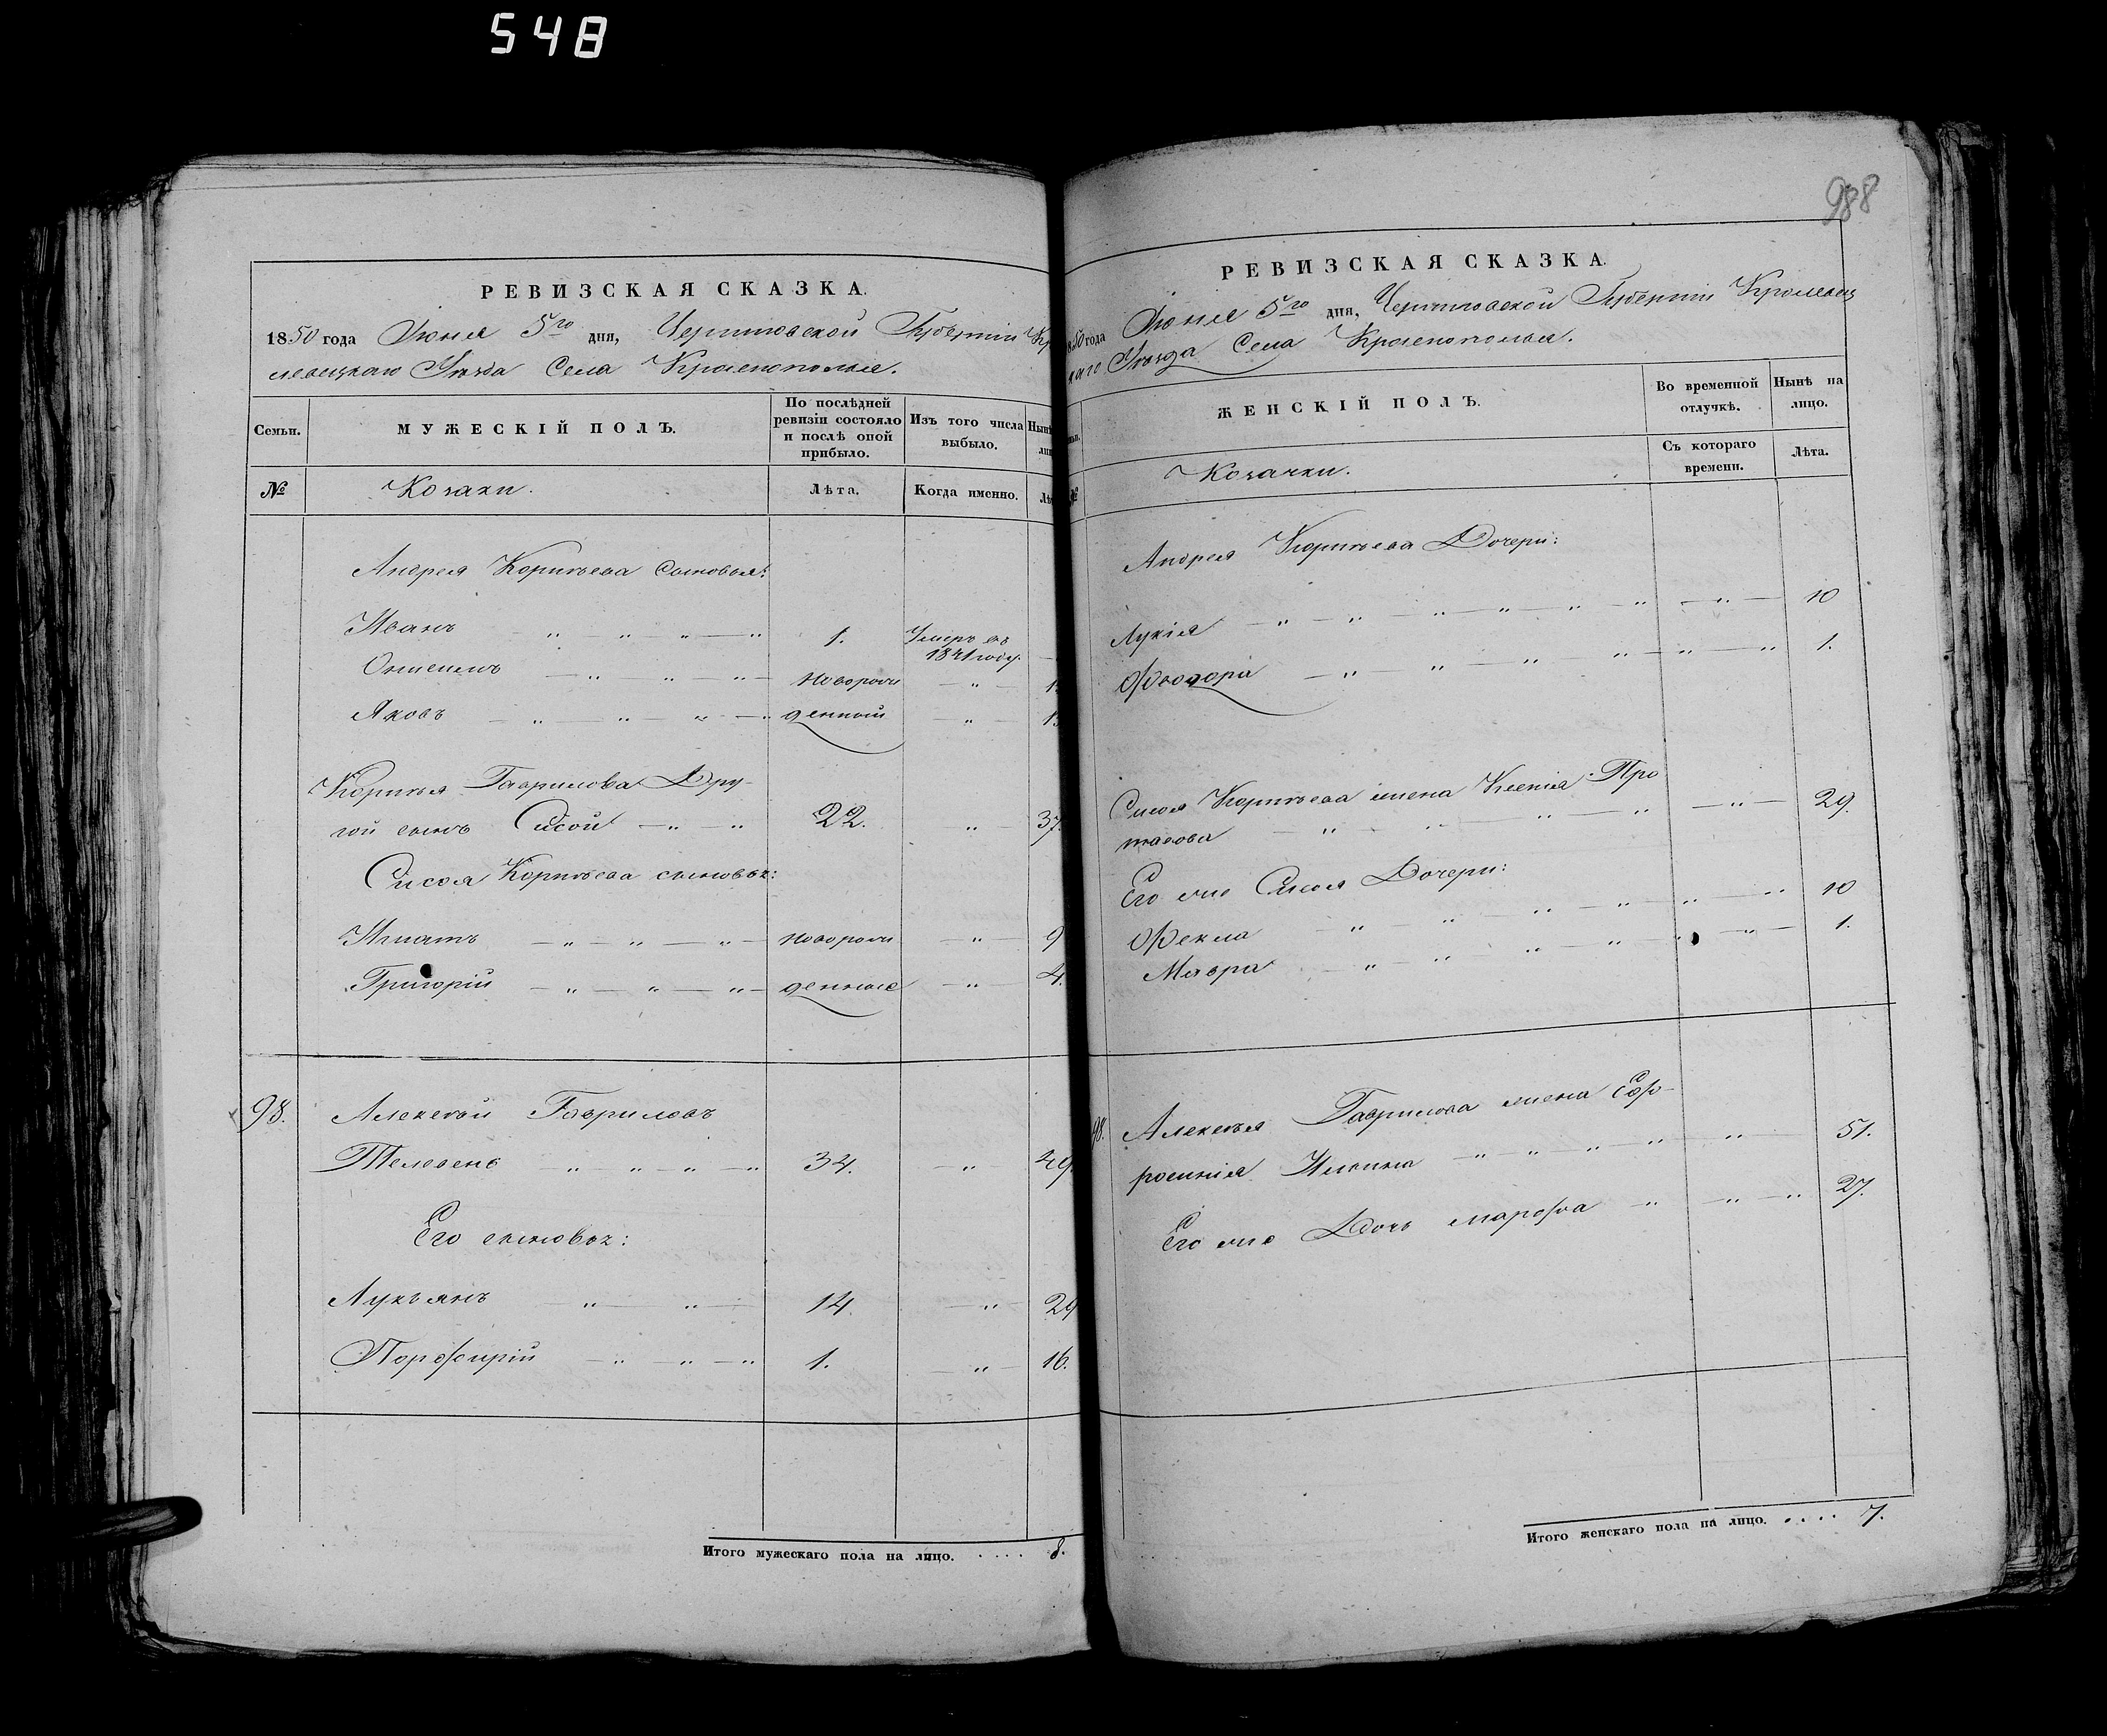 548
988
РЕВИЗСКАЯ СКАЗКА.
1850 года Іюня 5го дня, Черниговской Губерніи Кро
левецкаго Уѣзда Села Краснополья.
Семьи.
МУЖЕСКІЙ ПОЛЪ.
По послѣдней
ревизіи состояло
и послѣ оной
прибыло.
Изъ того числа
выбыло.
Нынѣ
№
Козаки.
Лѣта.
Когда именно.
Андрея Корнѣева сыновья:
Иванъ 1. Умеръ въ
1841 году.
новорож
Яковъ денный
Корнѣя Гаврилова Дру-
гой сынъ Сисой 22. 37.
Сисоя Корнѣева сыновья:
Игнатъ новорож 9
Григорій денные 4.
98. Алексѣй Гавриловъ
Телевень 34. 49.
Его сыновья:
Лукъянъ 14. 29
Порфирій 1. 16.
Итого мужескаго пола на лицо. . . . . 8.
РЕВИЗСКАЯ СКАЗКА.
1850 года Іюня 5го дня, Черниговской Губерніи Кролевец
каго Уѣзда Села Краснополья.
ЖЕНСКІЙ ПОЛЪ.
Во временной
отлучкѣ.
Нынѣ на
лицо.
Съ котораго
времени.
Лѣта.
№
Козачки.
Андрея Корнѣева Дочери:
Лукія 10
1.
Сисоя Корнѣева жена Ксенія Про
тасова 29.
Его же Сисоя Дочери:
Фекла 10
Мавра 1.
98. Алексѣя Гаврилова жена Еф-
росинія 51.
Его же Дочь Марфа 27.
Итого женскаго пола на лицо. . . . . 7.